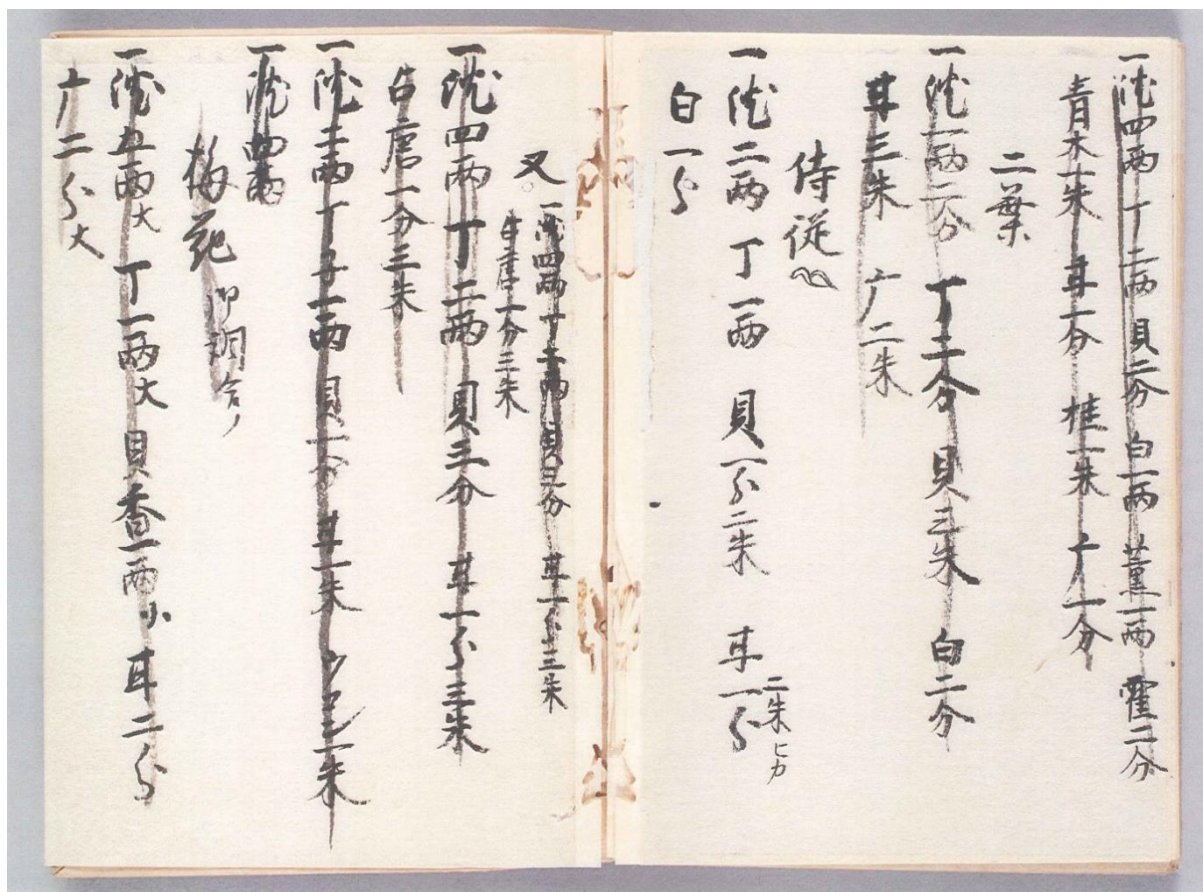 一沈四両 丁二両 貝二分 白一両 薫一両 霍二分
青木一朱 甘一分 桂一朱 广一分
二葉
一沈一両二分 丁二分 貝三朱 白二分
甘三朱 广二朱
侍従
一沈二両 丁一両 貝一分二朱 甘一分 二朱ヒカ
白一分
又 一沈四両 丁二両 貝三分 甘一分三朱
占唐一分三朱
一沈四両 丁二両 貝三分 甘一分三朱
占唐一分三朱
一沈二両 丁子一両 貝一分 甘一朱 一朱
一沈四両
梅花 御調合ノ
一沈五両大 丁一両大 貝香一両小 甘二分
广二分大